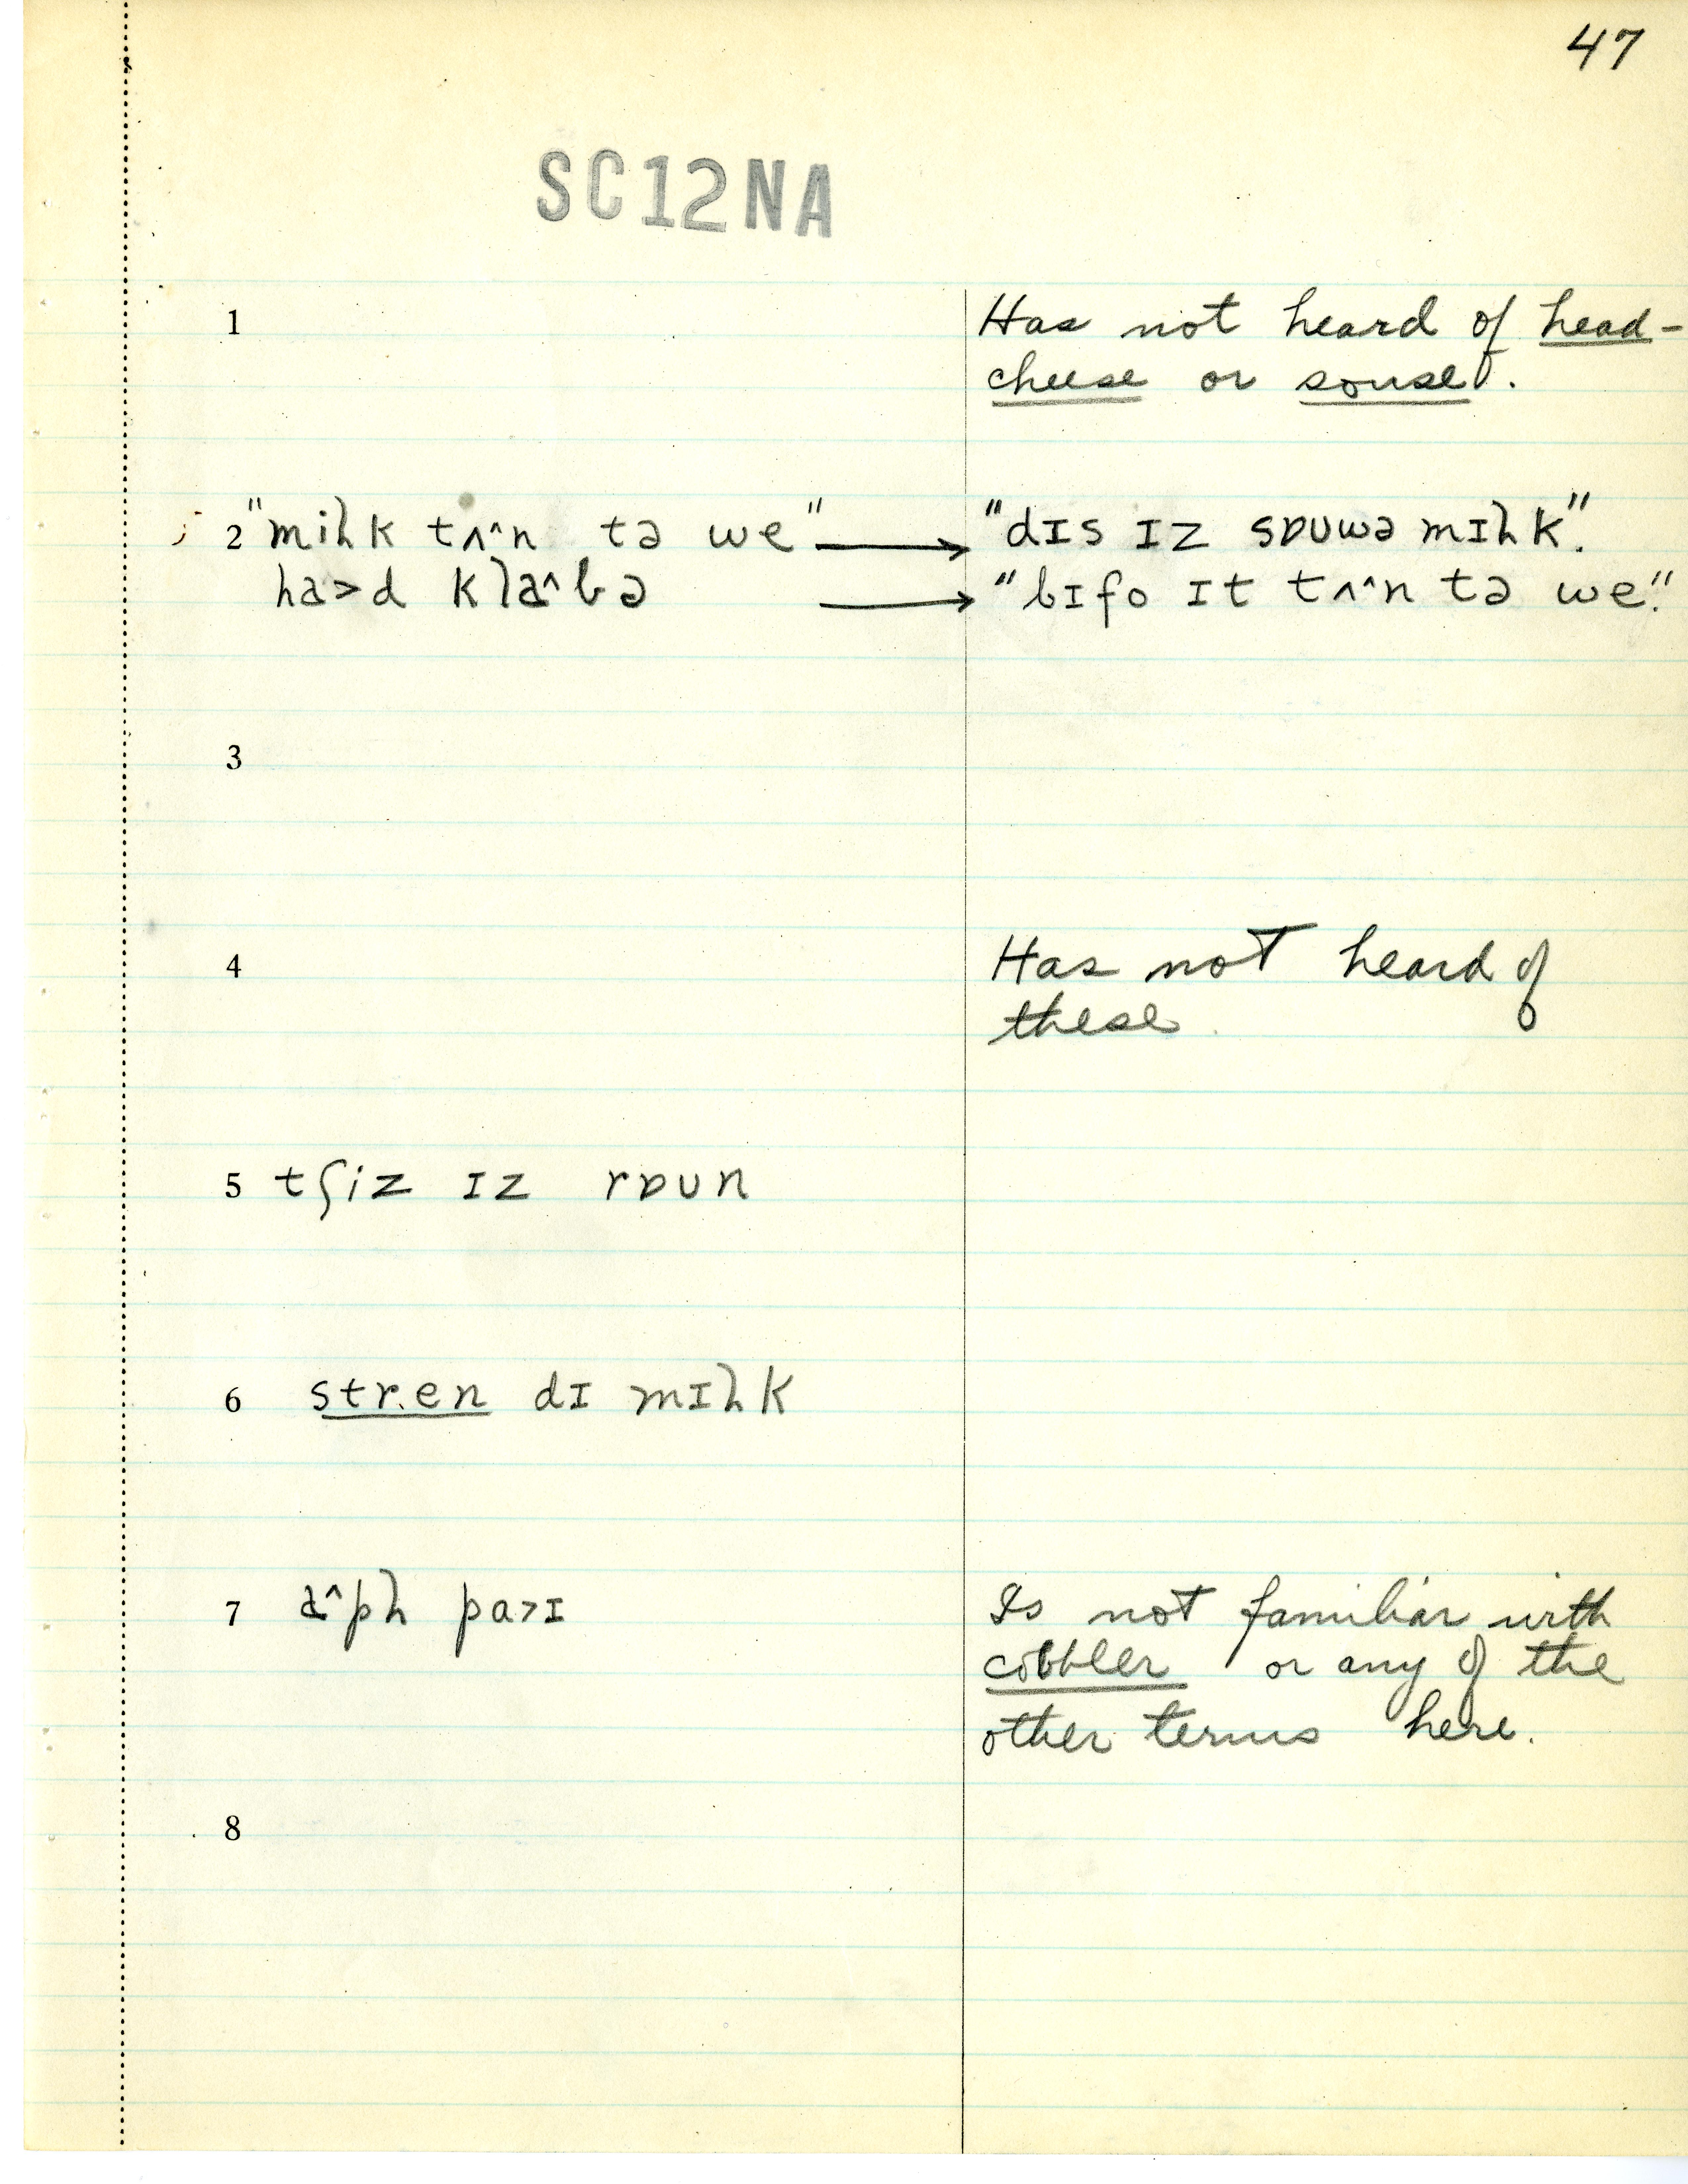 47
SC12NA
1 Has not heard of head-
cheese or souse.
2 "miɫk tʌ^n tə we" → "dɪs ɪz sɒuwə mɪɫk".
ha>d kla^bə → "bɪfo ɪt tʌ^n tə we."
3
4 Has not heard of
these.
5 tʃiz ɪz rɒun
6 str.en dɪ mɪɫk
7 a^pɫ pa>ɪ Is not familiar with
cobbler or any of the
other terms here.
8